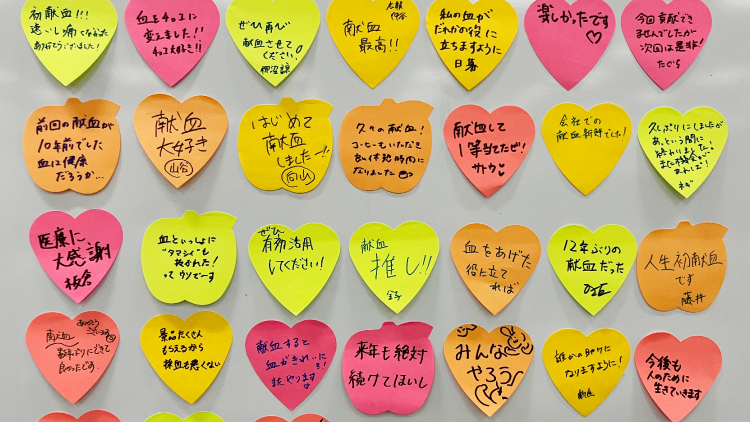 初献血!!!
速いし痛くなかった
ありがとうございました!
血をチョコに
変えました!!
チョコ大好き!!
ぜひ再び
献血させて
ください!
柳沼譲
献血
最高!!
私の血が
だれかの役に
立ちますように
日暮
楽しかったです
♡
今回貢献でき
ませんでしたが
次回は是非!
たぐち
前回の献血が
10年前でした
血は健康
だろうか…
献血
大好き
山谷
はじめて
献血
しましたー!!
向山
久々の献血!
コーヒーもいただき
良い休憩時間に
なりました
献血して
1等当てたぜ!
サトウ
会社での
献血新鮮でした!
久しぶりにしましたが
あっという間に
終わりました!
また機会が
あれば!
医療に
大感謝
板倉
血といっしょに
"タマシイ"も
抜かれた!
ってウソでーす
ぜひ
有効活用
してください!
献血
推し!!
血をあげた
役に立て
れば
12年ぶりの
献血だった
人生初献血
です
藤井
ありがとう
ございます
献血
数年ぶりにできて
良かったです.
景品たくさん
もらえるから
採血も悪くない
献血すると
血がきれいに
またやります
来年も絶対
続けてほしい
みんな
やろう
誰かの助けに
なりますように!
今後も
人のために
生きていきます